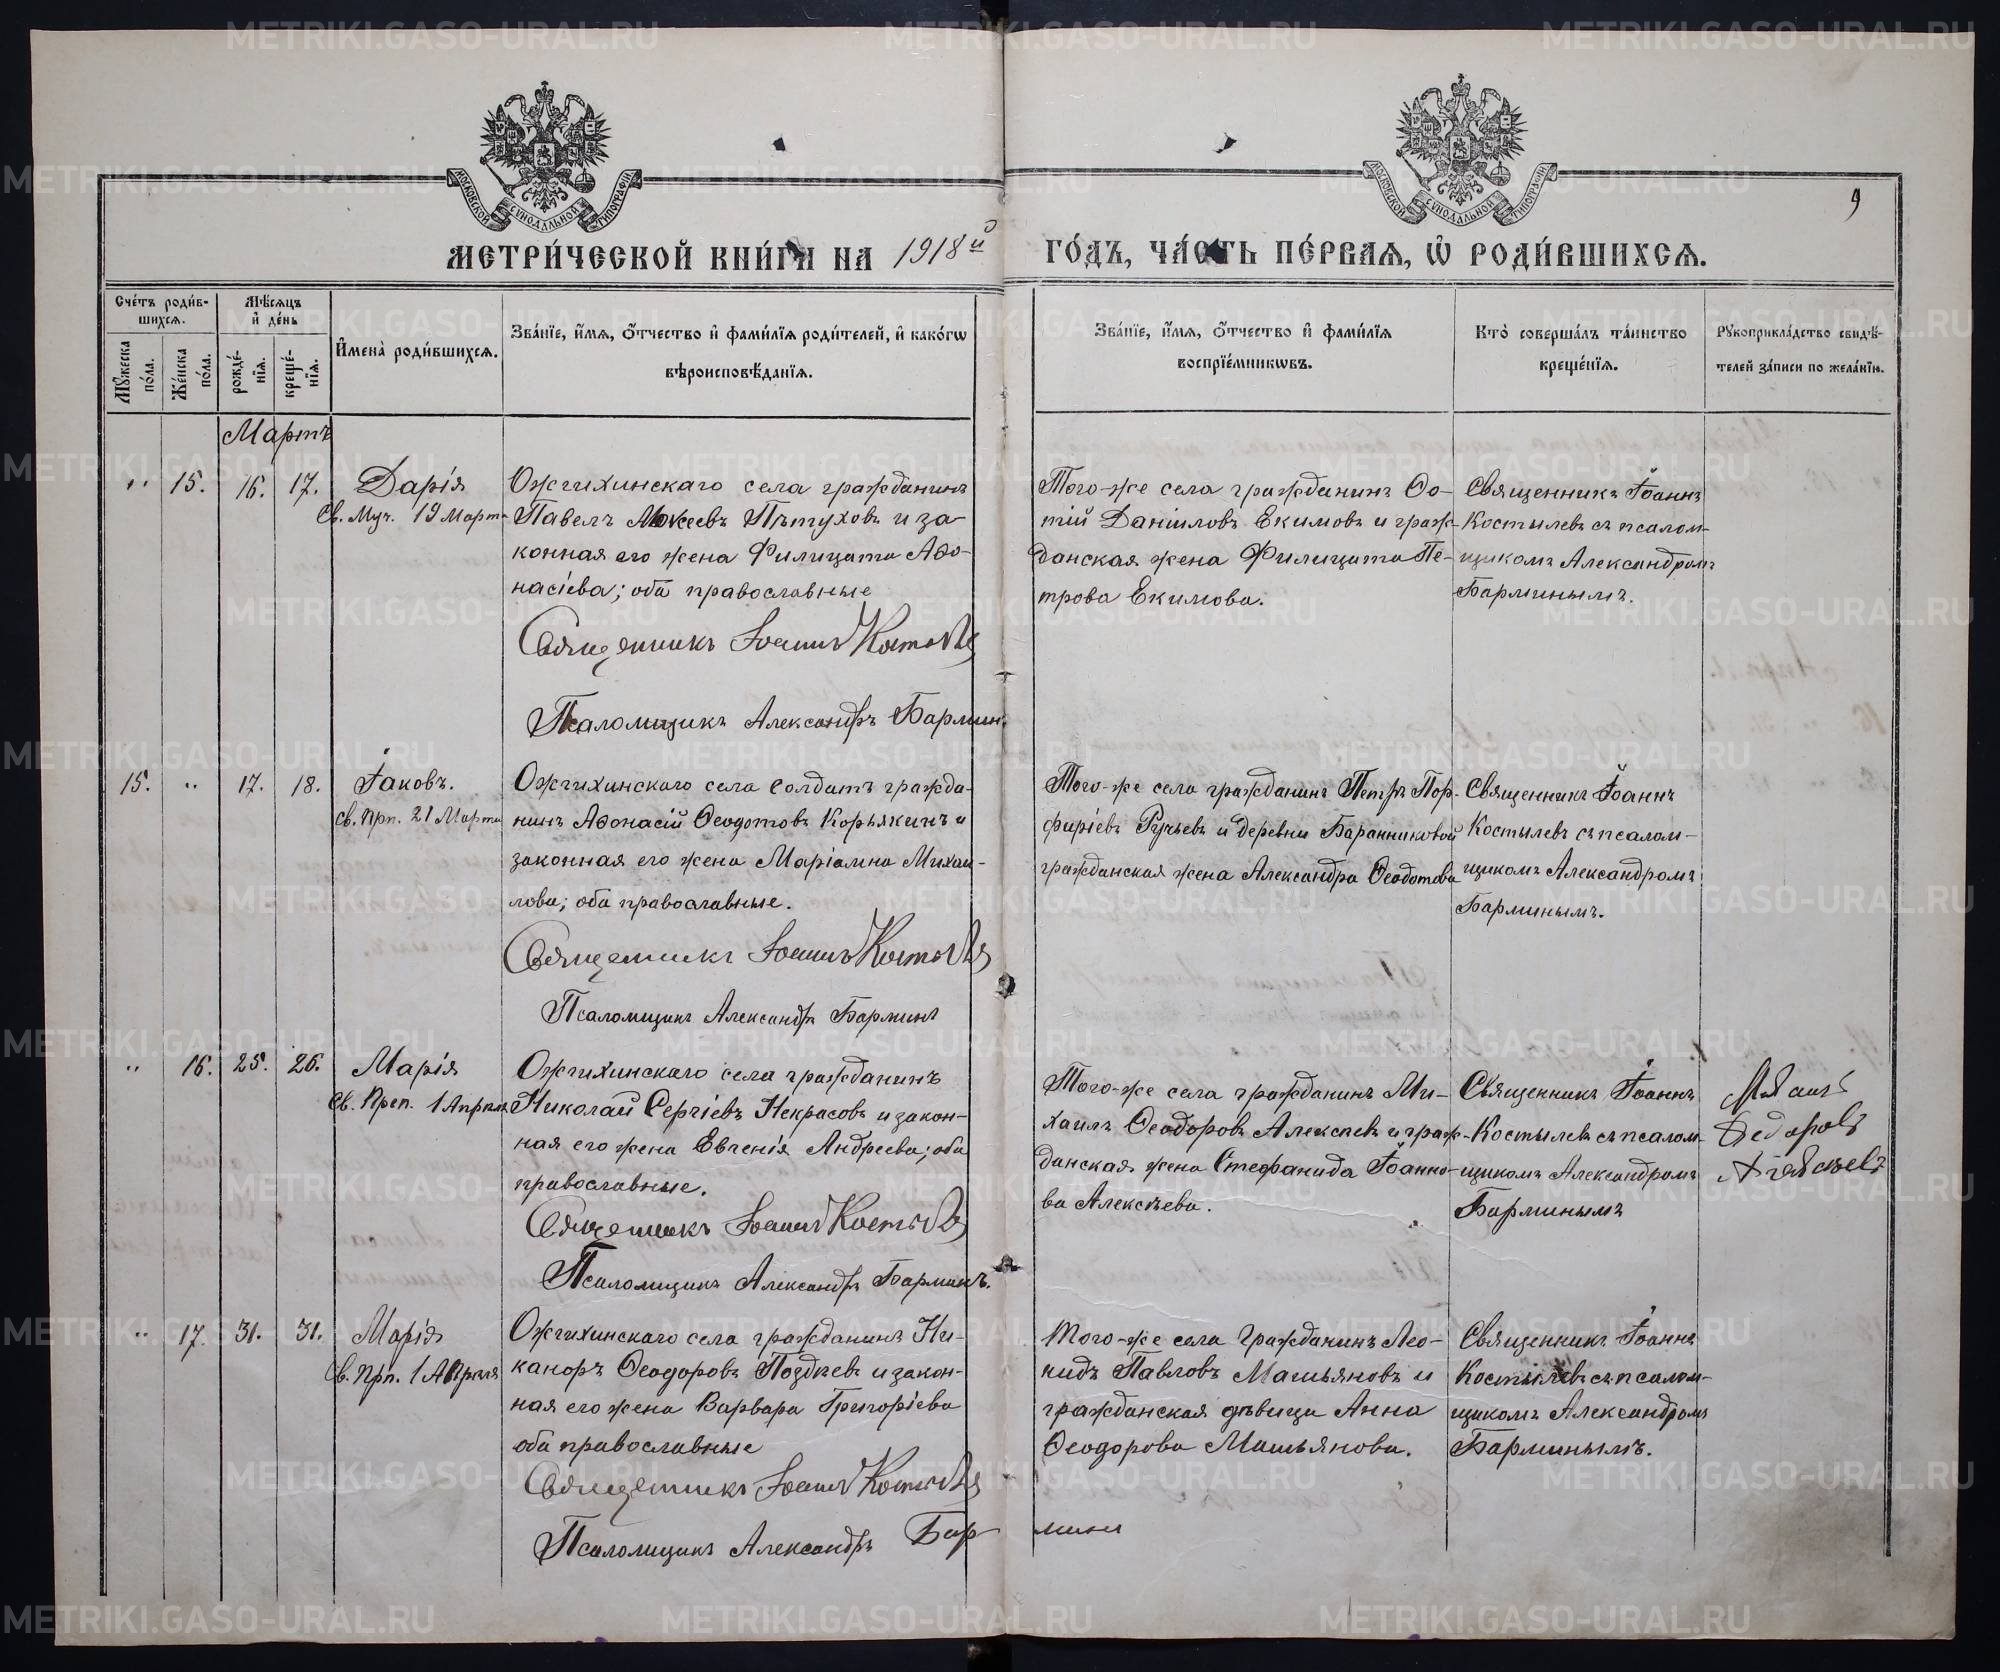 МЕТРИ́ЧЕСКОЙ КНИ́ГИ НА 1918й ГО́ДЪ, ЧА́СТЬ ПЕ́РВАѦ, Ѡ РОДИ́ВШИХСѦ.
9
МОСКОВСКОЙ СУНОДАЛЬНОЙ ТИПОГРАФІИ
МОСКОВСКОЙ СУНОДАЛЬНОЙ ТИПОГРАФІИ
Сче́тъ роди́в-
шихсѧ.
Мꙋ́жеска по́ла.
Же́нска по́ла.
Мѣ́сѧцъ
и҆ де́нь
рожде́-
нїѧ.
креще́-
нїѧ.
И҆мена̀ роди́вшихсѧ.
Зва́нїе, и҆́мѧ, ѻ҆́тчество и҆ фами́лїѧ роди́телей, и҆ како́гѡ
вѣроисповѣ́данїѧ.
Зва́нїе, и҆́мѧ, ѻ҆́тчество и҆ фами́лїѧ
воспрїе́мникѡвъ.
Кто̀ соверша́лъ та́инство
креще́нїѧ.
Рꙋкоприкла́дство свидѣ́-
телей за́писи по жела́нїю.
Мартъ
" 15. 16. 17.
Дарія
Св. Муч. 19 Марта
Ожгихинскаго села гражданинъ
Павелъ Мокеевъ Пѣтуховъ и за-
конная его жена Филицата Аѳо-
насіева; оба православные
Священникъ Іоаннъ Костылев
Псаломщикъ Александръ Барминъ
Того-же села гражданинъ Фо-
тій Даніиловъ Екимовъ и граж-
данская жена Филицата Пе-
трова Екимова.
Священникъ Іоаннъ
Костылевъ съ псалом-
щикомъ Александромъ
Барминымъ.
15. " 17. 18.
Іаковъ.
Св. Прп. 21 Марта
Ожгихинскаго села солдатъ гражда-
нинъ Аѳонасій Ѳеодотовъ Корьякинъ и
законная его жена Маріамна Михаи-
лова; оба православные.
Священникъ Іоаннъ Костылев
Псаломщикъ Александръ Барминъ
Того-же села гражданинъ Петръ Пор-
фиріевъ Ручьевъ и деревни Баранниковой
гражданская жена Александра Ѳеодотова
Священникъ Іоаннъ
Костылевъ съ псалом-
щикомъ Александромъ
Барминымъ.
" 16. 25. 26.
Марія
Св. Преп. 1 Апреля
Ожгихинскаго села гражданинъ
Николай Сергіевъ Некрасовъ и закон-
ная его жена Евгенія Андреева; оба
православные.
Священникъ Іоаннъ Костылев
Псаломщикъ Александръ Барминъ.
Того-же села гражданинъ Ми-
хаилъ Ѳеодоровъ Алексѣевъ и граж-
данская жена Стефанида Іоанно-
ва Алексѣева.
Священникъ Іоаннъ
Костылевъ съ псалом-
щикомъ Александромъ
Барминымъ
Федоровъ
" 17. 31. 31.
Марія
Св. Прп. 1 Апреля
Ожгихинскаго села гражданинъ Ни-
каноръ Ѳеодоровъ Поздѣевъ и закон-
ная его жена Варвара Григоріева
оба православные
Священникъ Іоаннъ Костылев
Псаломщикъ Александръ Барминъ
Того-же села Гражданинъ Лео-
нидъ Павловъ Машьяновъ и
гражданская дѣвица Анна
Ѳеодорова Машьянова.
Священникъ Іоаннъ
Костылевъ съ псалом-
щикомъ Александромъ
Барминымъ.
METRIKI.GASO-URAL.RU